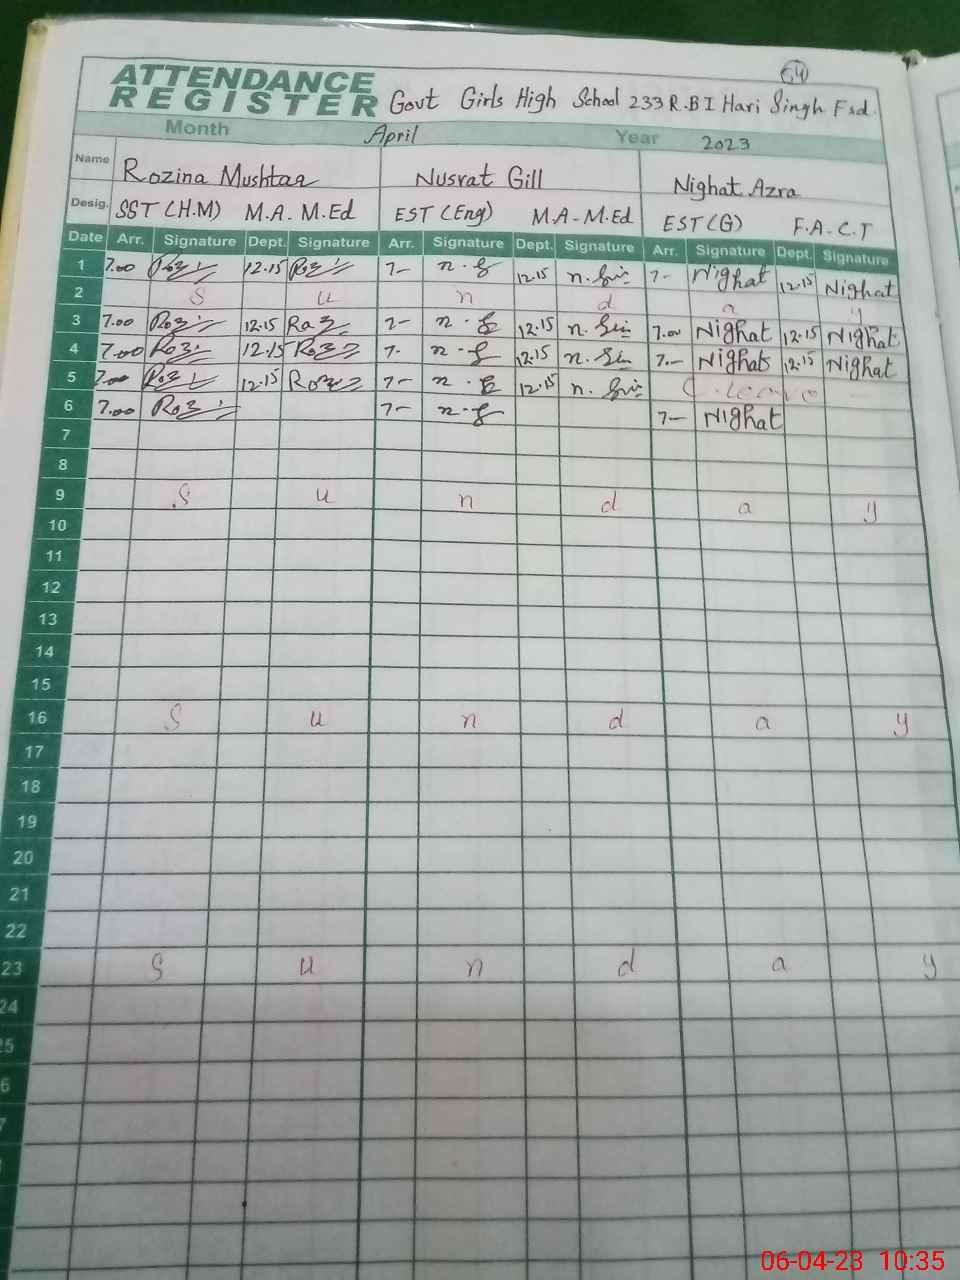 54
ATTENDANCE
REGISTER Govt Girls High School 233 R.B I Hari Singh Fsd.
Month April Year 2023
Name Rozina Mushtaq Nusrat Gill Nighat Azra
Desig. SST (H.M) M.A. M.Ed EST (Eng) M.A-M.Ed EST (G) F.A-C.T
Date Arr. Signature Dept. Signature Arr. Signature Dept. Signature Arr. Signature Dept. Signature
1 7.00 12.15 7- 12.15 7- Nighat 12.15 Nighat
2 S u n d a y
3 7.00 12.15 7- 12.15 7.00 Nighat 12.15 Nighat
4 7.00 12.15 7- 12.15 7- Nighat 12.15 Nighat
5 7.00 12.15 7- 12.15 C.leave
6 7.00 7- 7- Nighat
7
8
9 S u n d a y
10
11
12
13
14
15
16 S u n d a y
17
18
19
20
21
22
23 S u n d a y
24
25
6
7
06-04-23 10:35